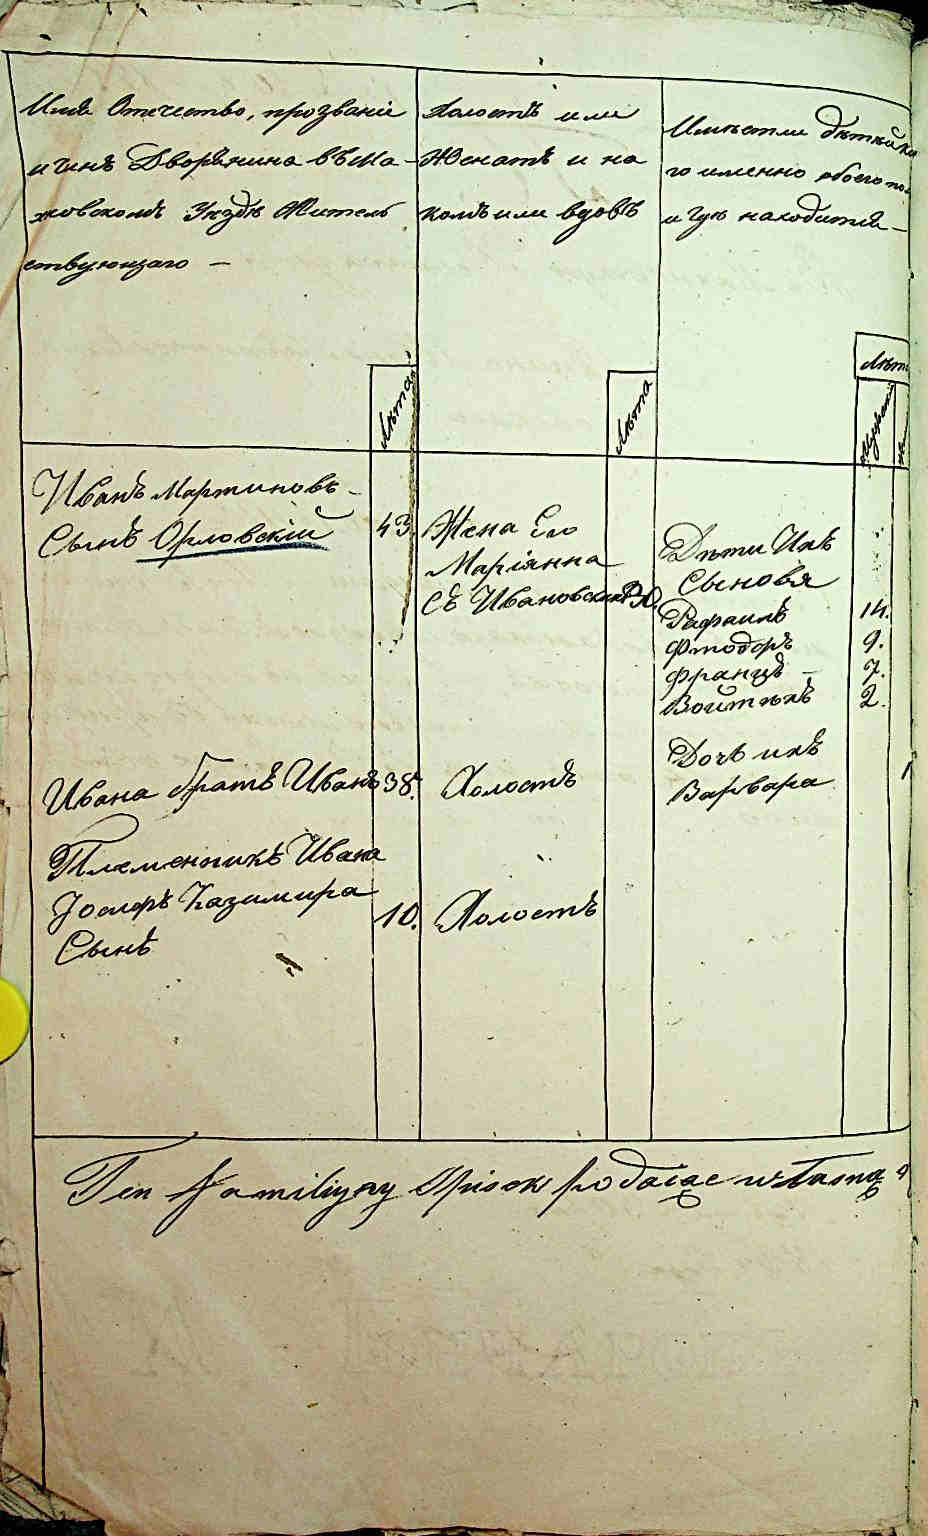 Имя Отечество, прозваніе
и чинъ Дворянина въ Ма-
ховскомъ Уѣздѣ Жительствующаго —
Холостъ или
Женатъ и на
комъ или вдовъ
Имѣетли дѣтей ко
го именно обоего по
и гдѣ находится —
Лѣта
Лѣта
Лѣт
Мужеск
Иванъ Мартиновъ -
Сынъ Орловскій
43.
Жена Его
Маріянна
Съ Ивановских
30.
Дѣти Ихъ
Сыновя
Рафаилъ 14.
Фтодоръ 9.
Францъ — 7.
Войтѣхъ 2.
Дочь ихъ
Варвара
Ивана братъ Иванъ 38.
Холостъ
Племенникъ Ивана
Іосифъ Казимира
Сынъ
10.
Холостъ
Ten Familiyny Spisek podaiąc własną